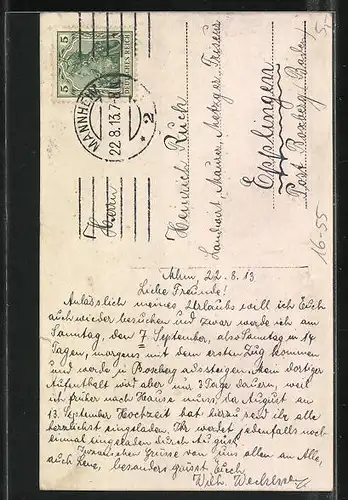 5 5
DEUTSCHES REICH
MANNHEIM
22.8.13.7-8
* 2
Herrn
Heinrich Ruck
Landwirt, Maurer, Metzger, Friseur
Epplingen
Post Boxberg (Baden)
5,-
16-55
Mhm, 22.8.13
Liebe Freunde!
Anlässlich meines Urlaubs will ich Euch
auch wieder besuchen und zwar werde ich am
Samstag, den 7 September, also Samstag in 14
Tagen, morgens mit dem ersten Zug kommen
und werde in Boxberg aussteigen. Mein dortiger
Aufenthalt wird aber nur 2 Tage dauern, weil
ich früher nach Hause muss, da August am
13. September Hochzeit hat hierzu seid ihr alle
herzlichst eingeladen. Ihr werdet jedenfalls noch
einmal eingeladen durch August.
Inzwischen Grüsse von uns allen an Alle,
auch Lene, besonders grüsst Euch
Wilh.